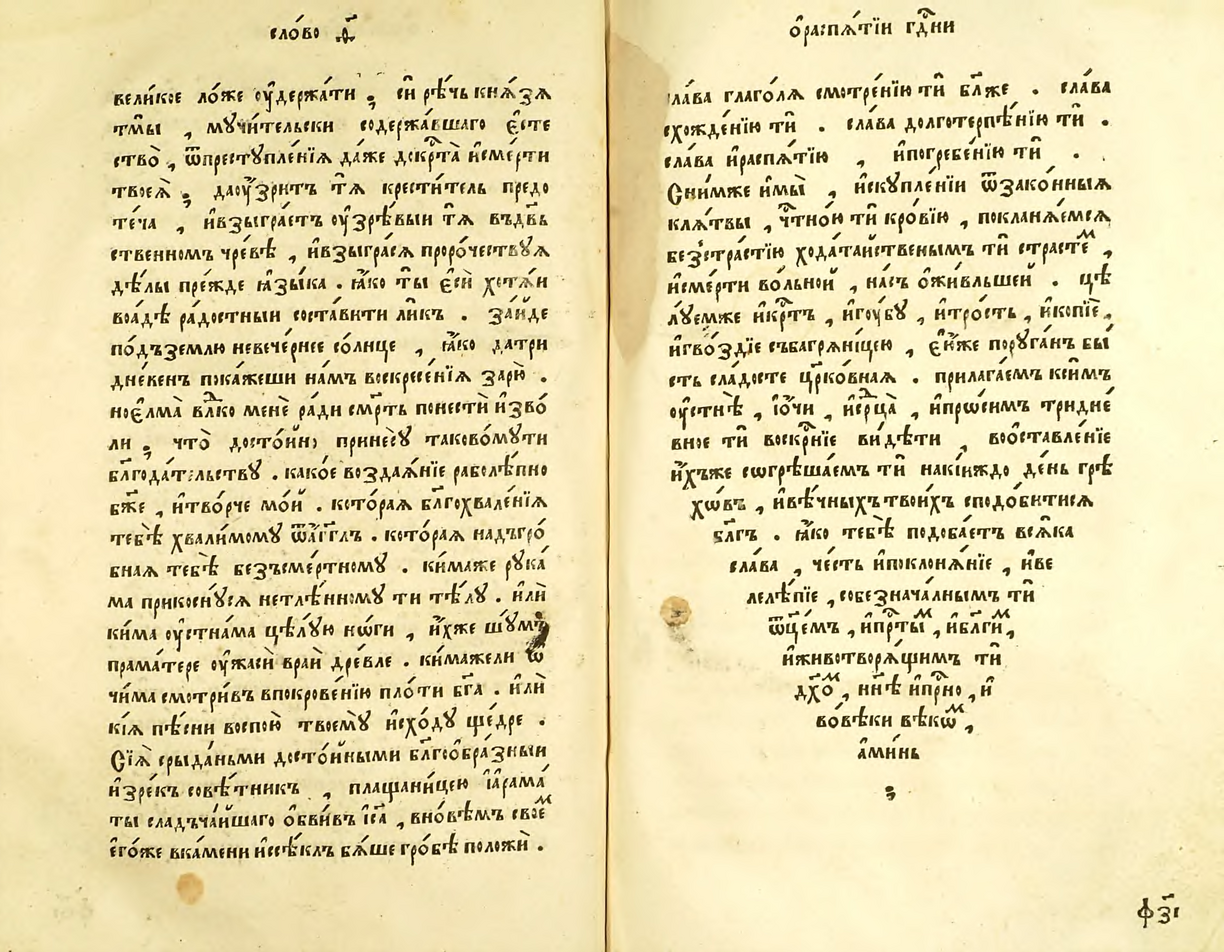 сло́во ꙁ҃
вели́кое ло́же ᲂу҆держа́ти ; си̑ рѣ́чь кнѧ́зѧ
тмы̀ , мꙋчи́тельски содержа́вшаго є҆сте
ство̀ , ѿпрестꙋпле́нїѧ да́же докрⷭ҇та̀ и҆сме́рти
твоеѧ̀ ; даᲂу҆́зритъ тѧ̀ крести́тель предо
те́ча , и҆взыгра́етъ ᲂу҆зрѣ́выи тѧ̀ въдв҃ь
ственномъ чре́вѣ , и҆взыгра́сѧ проро́чествꙋѧ
дѣ́лы пре́жде ꙗ҆зы́ка . ꙗ҆́ко ты̀ є҆сѝ хотѧ́и
воа́дѣ ра́достныи соста́вити ли́къ . За́иде
по́дъземлю невече́рнее со́лнце , ꙗ҆́ко датри
дне́венъ пока́жеши на́мъ воскресе́нїѧ зарю̀ .
ноє҆лма̀ влⷣко менѐ ра́ди сме́рть понестѝ и҆зво́
ли ; что̀ досто́йно принесꙋ̀ таково́мꙋти
бл҃года́тельствꙋ . како́е воздаѧ́нїе раболѣ́пно
бж҃е , и҆тво́рче мо́й . кото́раѧ бл҃гохвале́нїѧ
тебѣ̀ хвали́момꙋ ѿа҆́гг҃лъ . кото́раѧ надъгро́
бнаѧ тебѣ̀ безъсме́ртномꙋ . ки́маже рꙋка́
ма прикоснꙋ́сѧ нетлѣ́нномꙋ ти тѣ́лꙋ . и҆лѝ
ки́ма ᲂу҆стна́ма цѣлꙋ́ю но́ги , и҆́хже шꙋ́мъ
прама́тере ᲂу҆жасѝ вра́й дре́вле . ки́мажели ѻ҆
чи́ма смотри́въ впокрове́нїю пло́ти бг҃а . и҆лѝ
кі́ѧ пѣ́сни воспою̀ твоемꙋ̀ и҆схо́дꙋ ще́дре .
Сїѧ̀ срыда́ньми досто́йными бл҃гоѻ҆бра́зныи
и҆зре́къ совѣ́тникъ , плащани́цею і҆а҆рама́
ты сладъча́йшаго ѻ҆бви́въ і҆с҃а , вно́вѣмъ свое́ⷨ
є҆го́же вка́мени и҆ссѣ́клъ бѧ́ше гро́бѣ положѝ .
ѻ҆распѧ́тїи гдⷭ҇ни
сла́ва глаго́лѧ смотре́нїю тѝ бл҃же . сла́ва
схожде́нїю тѝ . сла́ва долготерпѣ́нїю тѝ .
сла́ва и҆распѧ́тїю , и҆погребе́нїю тѝ .
Сни́мже и҆мы̀ , и҆скꙋпле́нїи ѿзако́нныѧ
клѧ́твы , чⷭ҇тно́ю тѝ кро́вїю , покланѧ́емсѧ
безстра́стїю хода́тайственымъ тѝ страсте́ⷨ ,
и҆сме́рти во́льной , на́съ ѻ҆жи́вльшей . цѣ
лꙋ́емже и҆крⷭ҇тъ , и҆го́убꙋ , и҆тро́сть , и҆копїѐ ,
и҆гво́здїе събагрѧни́цею , є҆ю́же порꙋ́ганъ бы́
сть сла́досте цр҃ко́внаѧ . прилага́емъ кси́мъ
ᲂу҆стнѣ̀ , і҆ѻ҆́чи , и҆ срⷣца̀ , и҆про́симъ тридне́
вное тѝ воскрⷭ҇нїе ви́дѣти , воѡ҆ставле́нїе
и҆́хъже согрѣша́емъ тѝ накі́йждо де́нь грѣ
хо́въ , и҆вѣ́чныхътвои́хъ сподо́битисѧ
бл҃гъ . ꙗ҆́ко тебѣ̀ подоба́етъ всѧ́ка
сла́ва , че́сть и҆поклонѧ́нїе , и҆ве
лелѣ́пїе , собезнача́лнымъ тѝ
ѿц҃е́мъ , и҆прⷭ҇ты́ⷨ , и҆бл҃ги́ⷨ ,
и҆животворѧ́щимъ тѝ
дх҃о́ⷨ , нн҃ѣ и҆прⷭ҇но , и҆
во́вѣки вѣкѡ́ⷨ ,
а҆ми́нь
;
ф҃зі